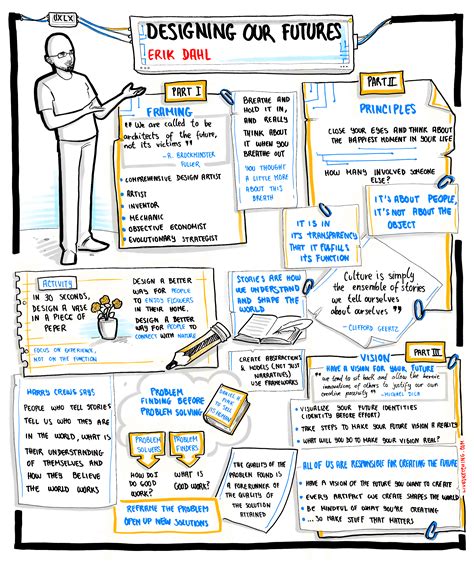 UXLX
DESIGNING OUR FUTURES
ERIK DAHL
PART I
FRAMING
"We are called to be
architects of the future,
not its victims"
- R. BROCKMINSTER
FULLER
COMPREHENSIVE DESIGN ARTIST
ARTIST
INVENTOR
MECHANIC
OBJECTIVE ECONOMIST
EVOLUTIONARY STRATEGIST
BREATHE AND
HOLD IT IN,
AND REALLY
THINK ABOUT
IT WHEN YOU
BREATHE OUT
YOU THOUGHT
A LITTLE MORE
ABOUT THIS
BREATH
PART II
PRINCIPLES
CLOSE YOUR EYES AND THINK ABOUT
THE HAPPIEST MOMENT IN YOUR LIFE
HOW MANY INVOLVED SOMEONE
ELSE?
IT'S ABOUT PEOPLE,
IT'S NOT ABOUT THE
OBJECT
IT IS IN
IT'S TRANSPARENCY
THAT IT FULFILLS
IT'S FUNCTION
ACTIVITY
IN 30 SECONDS,
DESIGN A VASE
IN A PIECE OF
PEPER
FOCUS ON EXPERIENCE,
NOT ON THE FUNCTION
DESIGN A BETTER
WAY FOR PEOPLE
TO ENJOY FLOWERS
IN THEIR HOME.
DESIGN A BETTER
WAY FOR PEOPLE TO
CONNECT WITH NATURE
STORIES ARE HOW
WE UNDERSTAND
AND SHAPE THE
WORLD
Culture is simply
the ensemble of stories
we tell ourselves
about ourselves
- CLIFFORD GEERTZ
CREATE ABSTRACTIONS
& MODELS (NOT JUST
NARRATIVES)
USE FRAMEWORKS
HARRY CREWS SAYS
PEOPLE WHO TELL STORIES
TELL US WHO THEY ARE
IN THE WORLD, WHAT IS
THEIR UNDERSTANDING
OF THEMSELVES AND
HOW THEY BELIEVE
THE WORLD WORKS
PROBLEM
FINDING BEFORE
PROBLEM SOLVING
PROBLEM
SOLVERS
PROBLEM
FINDERS
HOW DO I
DO GOOD
WORK?
WHAT IS
GOOD WORK?
REFRAME THE PROBLEM
OPEN UP NEW SOLUTIONS
THE QUALITY OF THE
PROBLEM FOUND IS
A FORERUNNER OF
THE QUALITY OF
THE SOLUTION
ATTAINED
PART III
VISION
HAVE A VISION FOR YOUR FUTURE
"we tend to sit back and allow the heroic
innovations of others to justify our own
creative passivity"
VISUALIZE YOUR FUTURE IDENTITIES
(IDENTITY BEFORE EFFORT)
TAKE STEPS TO MAKE YOUR FUTURE VISION A REALITY
WHAT WILL YOU DO TO MAKE YOUR VISION REAL?
ALL OF US ARE RESPONSIBLE FOR CREATING THE FUTURE
HAVE A VISION OF THE FUTURE YOU WANT TO CREATE
EVERY ARTIFACT WE CREATE SHAPES THE WORLD
BE MINDFUL OF WHAT YOU'RE CREATING
... SO MAKE STUFF THAT MATTERS